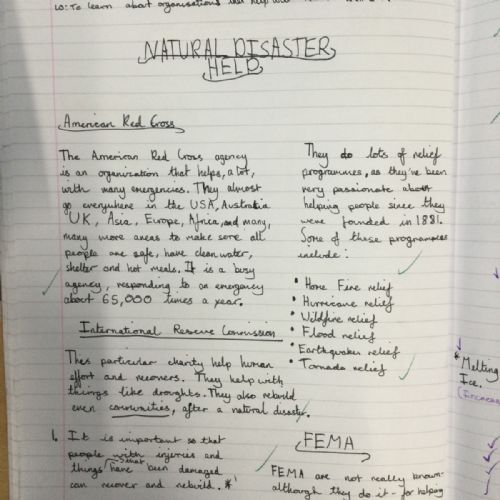 LO: To learn about organisations that help
NATURAL DISASTER
HELP
American Red Cross
The American Red Cross agency
is an organization that helps, a lot,
with many emergencies. They almost
go everywhere in the USA, Australia
UK, Asia, Europe, Africa, and many,
many more areas to make sore all
people are safe, have clean water,
shelter and hot meals. It is a busy
agency, responding to an emergency
about 65,000 times a year.
They do lots of relief
programmes, as they've been
very passionate about
helping people since they
were founded in 1881.
Some of these programmes
include:
• Home Fire relief
• Hurricane relief
• Wildfire relief
• Flood relief
• Earthquake relief
• Tornado relief
International Rescue Commission
This particular charity help human
effort and recovers. They help with
things like droughts. They also rebuild
even communities, after a natural disaster.
1. It is important so that
people with injuries and
things have been damaged
can recover and rebuild. *
FEMA
FEMA are not really known-
although they do it - for helping
* Melting
Ice.
(Increase